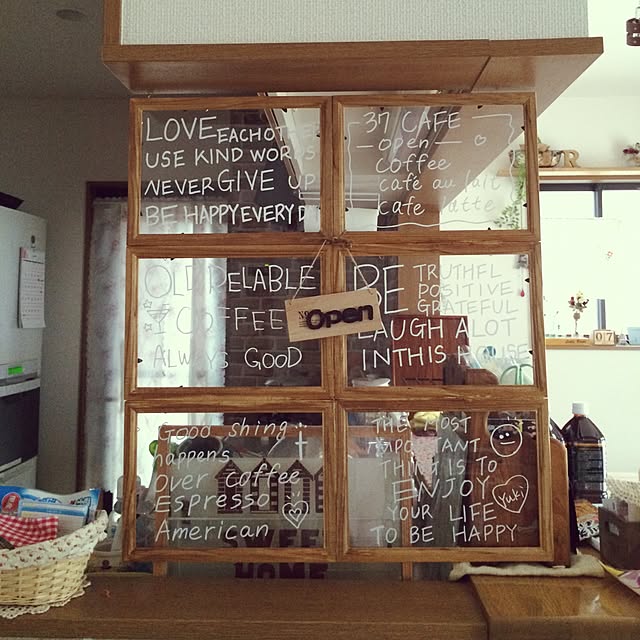 LOVE EACHOTHE
USE KIND WORDS
NEVER GIVE UP
BE HAPPY EVERY D
37 CAFE
open
coffee
café au lait
cafe latte
OLD DELABLE
COFFEE
ALWAYS GOOD
Open
BE TRUTHFL
POSITIVE
GRATEFUL
LAUGH ALOT
IN THIS HOUSE
Good shing
happens
over coffee
Espresso
American
THE MOST
IMPORTANT
THING IS TO
ENJOY
YOUR LIFE
TO BE HAPPY
Yuki
SWEET
HOME
07